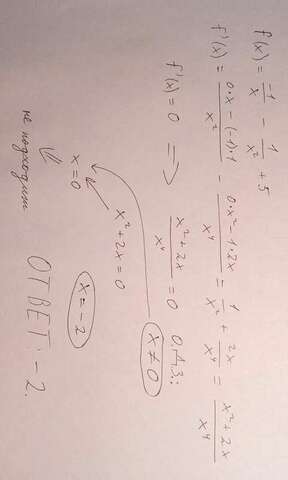 f(x) = -1/x - 1/x² + 5
f'(x) = (0·x - (-1)·1)/x² - (0·x² - 1·2x)/x⁴ = 1/x² + 2x/x⁴ = (x² + 2x)/x⁴
f'(x) = 0 => (x² + 2x)/x⁴ = 0 О.Д.З:
x ≠ 0
x² + 2x = 0
x = 0 x = -2
не подходит
ОТВЕТ: -2.